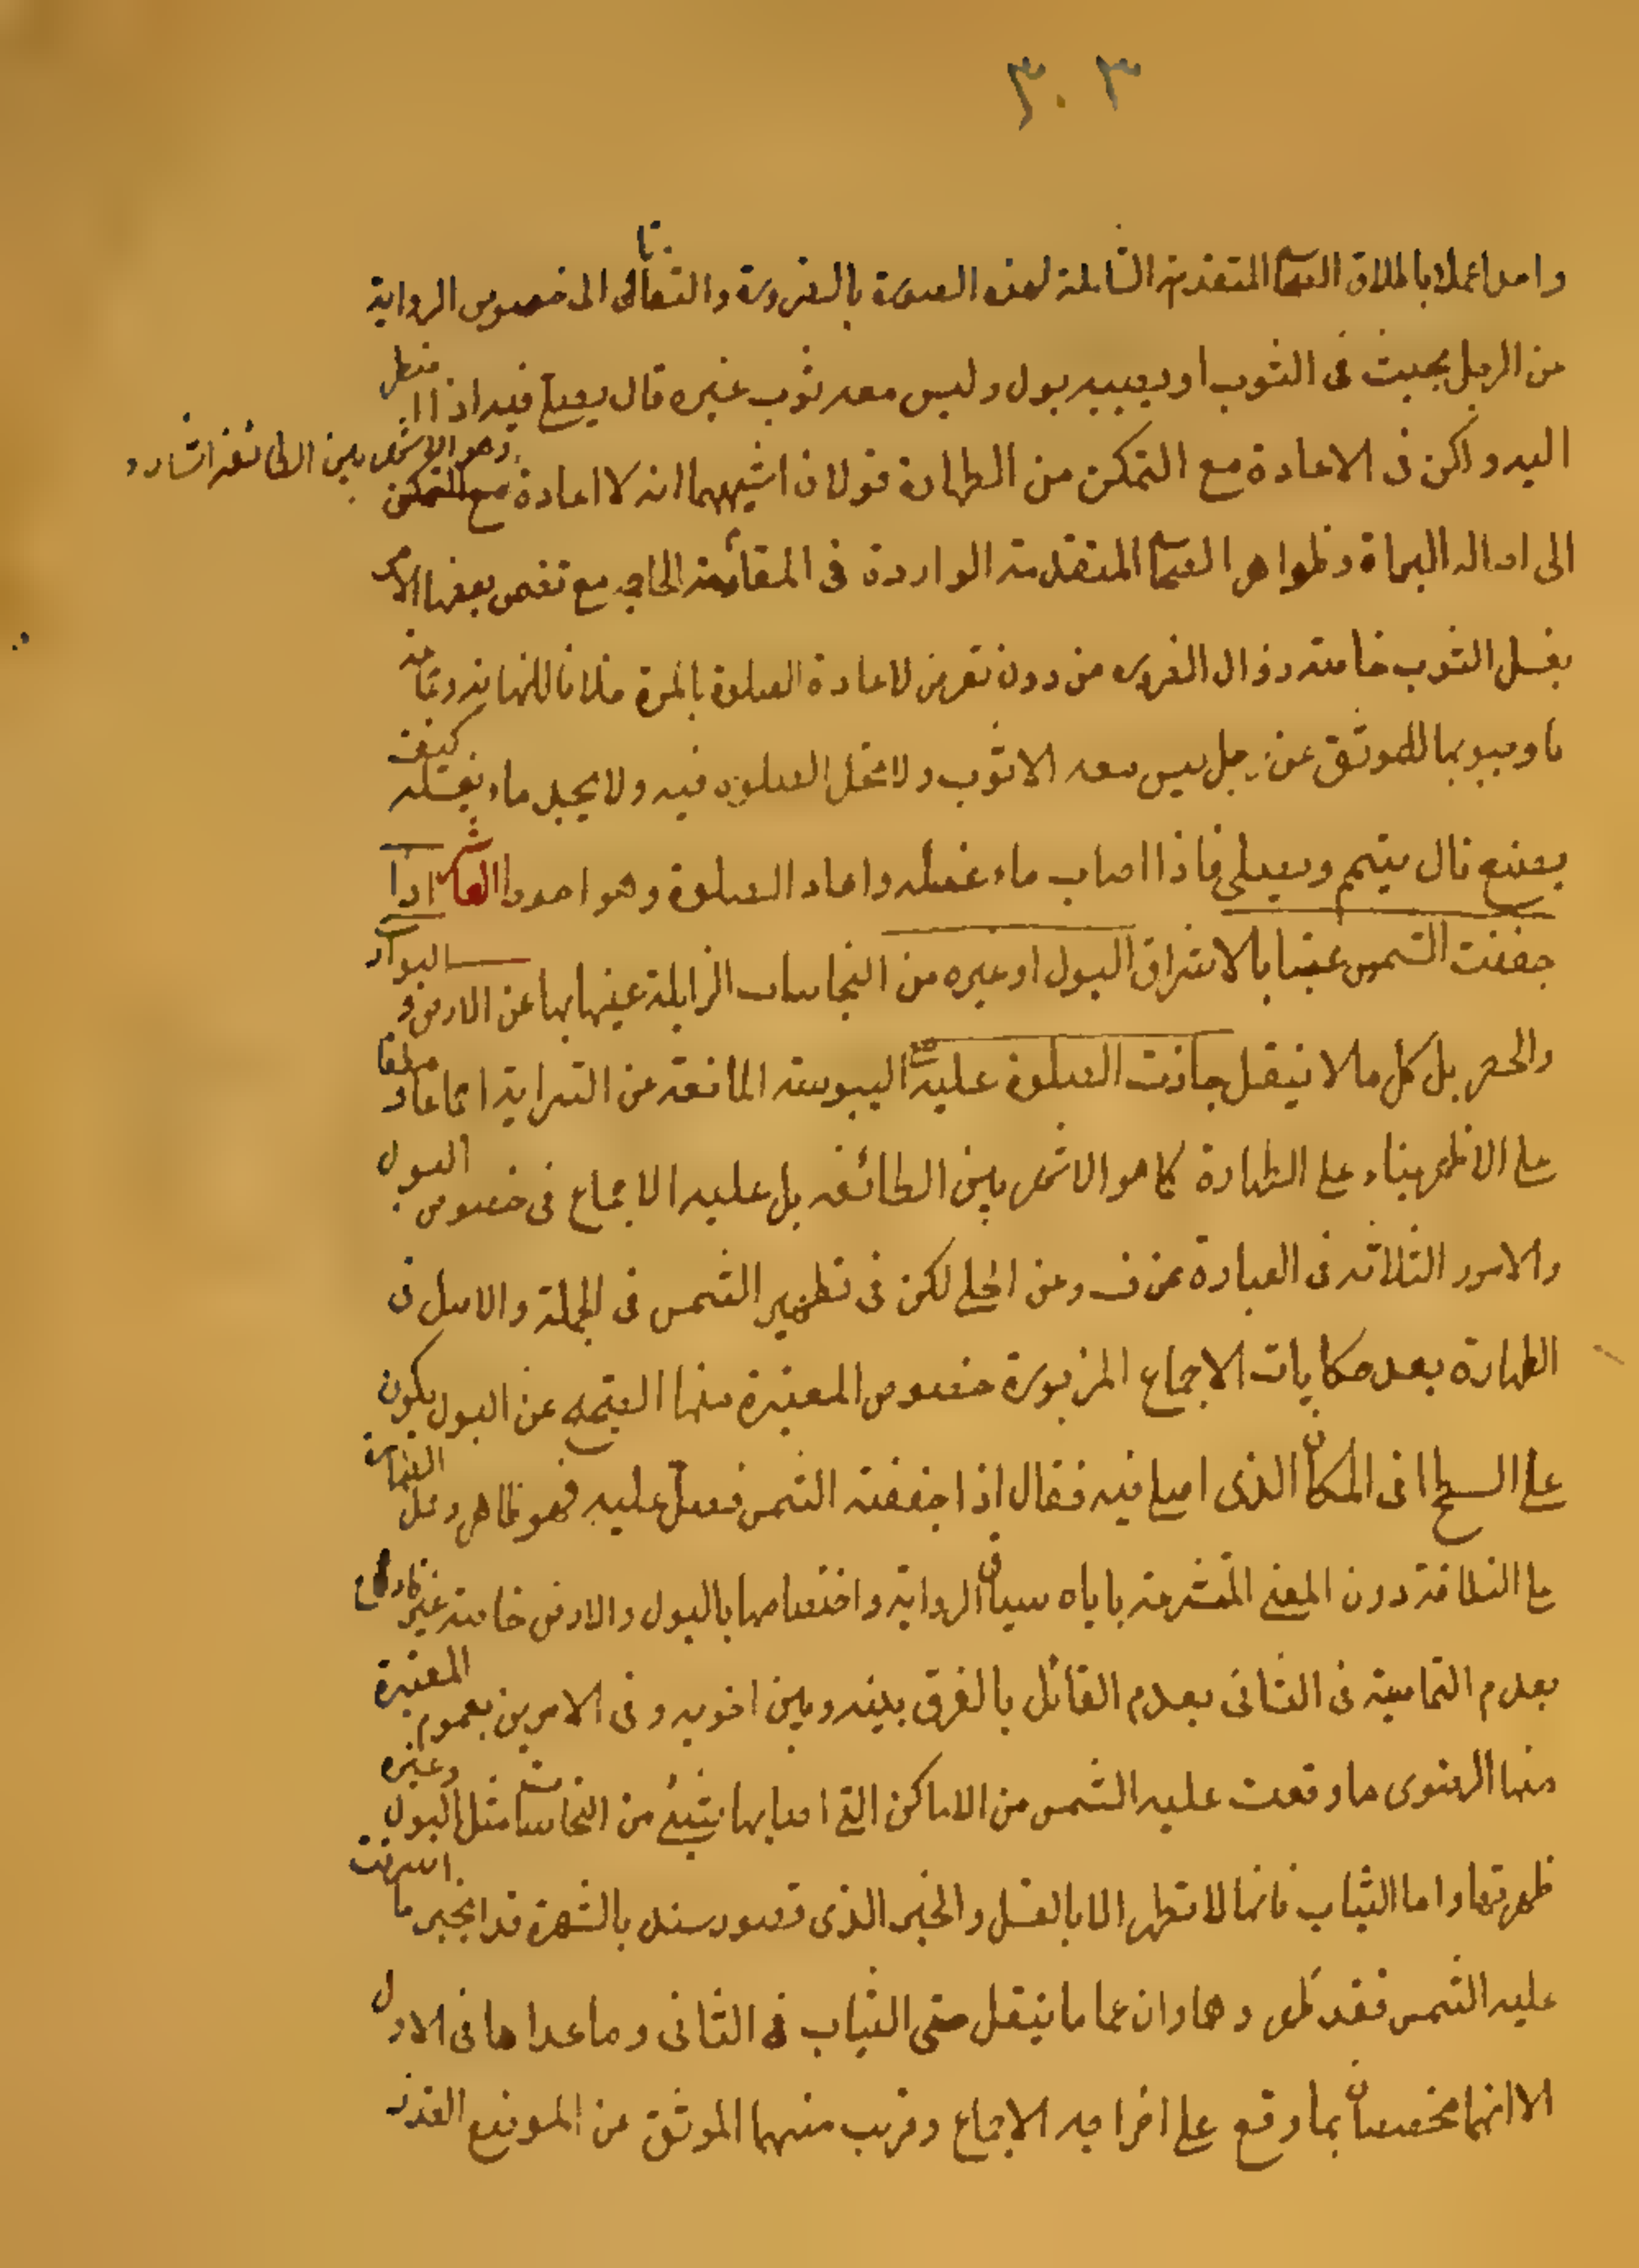 ٣٠٣
واحد عملا باطلاق الصحاح المتقدمة الشاملة لهذه الصورة بالضرورة والتفاتا الى خصوص الرواية
عن الرجل يجنب فى الثوب او يصيبه بول وليس معه ثوب غيره قال يصلى فيه اذا اضطر
اليه ولكن فى الاعادة مع التمكن من الطهارة قولان اشبههما انه لا اعادة وهو الاشهر بين الطائفة استنادا
الى اصالة البراءة وظواهر الصحاح المتقدمة الواردة فى المقام الحاجة مع تضمن بعضها الامر
بغسل الثوب خاصة زوال الضرورة من دون تعرض لاعادة الصلوة بالمرة خلافا للنهاية وجماعة
فاوجبوها للموثق عن رجل ليس معه الا ثوب ولا تحل الصلوة فيه ولا يجد ماء يغسله كيف
يصنع قال يتيمم ويصلى فاذا اصاب ماء غسله واعاد الصلوة وهو احوط العاشر اذا
جففت الشمس عينا بالاشراق البول او غيره من النجاسات الزايلة عينها بها عن الارض و البوارى
والحصر بل كل ما لا ينقل جازت الصلوة عليه مع اليبوسة المانعة عن السراية اجماعا و مطلقا
على الاظهر بناء على الطهارة كما هو الاشهر بين الطائفة بل عليه الاجماع فى خصوص البول
والامور الثلاثة فى العبارة عن ف وعن الحلى لكن فى تطهير الشمس فى الجملة والاصل فى
الطهارة بعد حكايات الاجماع المزبورة خصوص المعتبرة منها الصحيح عن البول يكون
على السطح او فى المكان الذى اصلى فيه فقال اذا جففته الشمس فصل عليه فهو طاهر وحمل الطهارة
على النظافة دون المعنى المتشرعة ياباه سياق الرواية واختصاصها بالبول والارض خاصة غير قادح
بعدم التمامية فى الثانى بعدم القائل بالفرق بينه وبين اخويه وفى الامرين بعموم المعتبرة
منها الرضوى ما وقعت عليه الشمس من الاماكن التى اصابها شيء من النجاسات مثل البول وغيره
طهرتها واما الثياب فانها لا تطهر الا بالغسل والخبر الذى قصور سنده بالشهرة قد انجبر ما اشرقت
عليه الشمس فقد طهر وهما وان عما ما ينقل حتى الثياب فى الثانى وما عداها فى الاول
الا انهما مخصصان بما وقع على اخراجه الاجماع وقريب منهما الموثق عن الموضع القذر